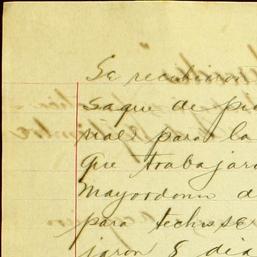 Se recibieron
saque de pie
riales para la
que trabajar
Mayordomo d
para techos e
jaron 5 dia